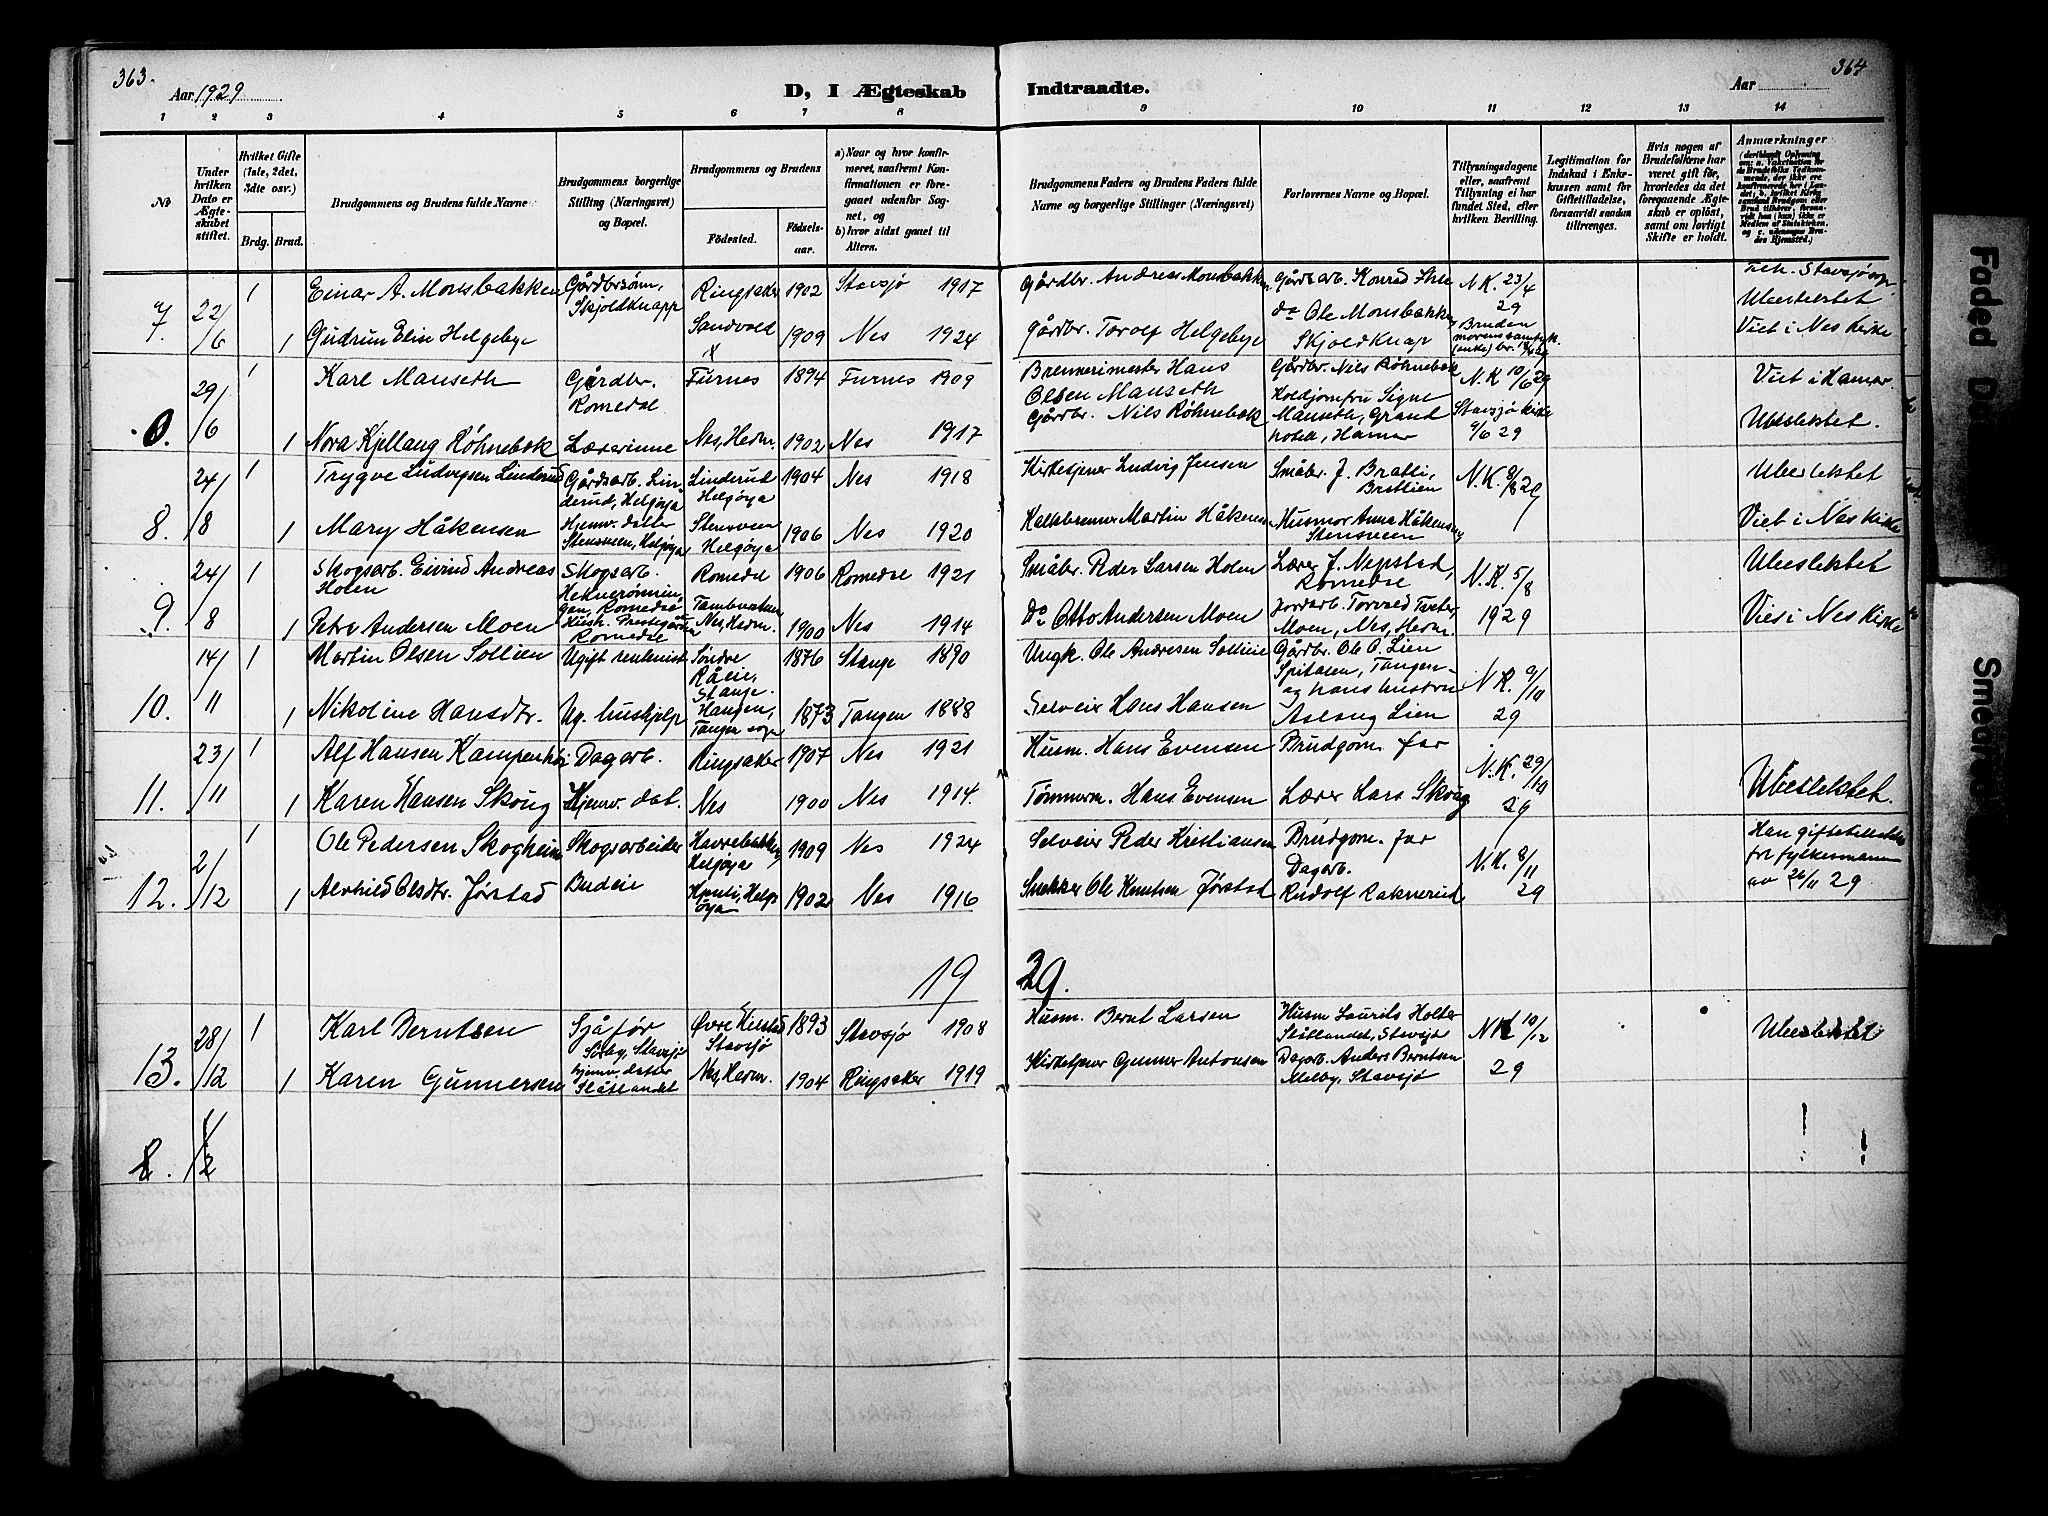 363.
Aar 1929
D, I Ægteskab
Indtraadte.
Aar
364
1 2 3 4 5 6 7 8 9 10 11 12 13 14
№
Under hvilken Dato er Ægteskabet stiftet.
Hvilket Gifte (1ste, 2det, 3die osv.)
Brdg. Brud.
Brudgommens og Brudens fulde Navne
Brudgommens borgerlige Stilling (Næringsvei) og Bopæl.
Brudgommens og Brudens
Fødested. Fødselsaar.
a) Naar og hvor konfirmeret, saafremt Konfirmationen er foregaaet udenfor Sognet, og
b) hvor sidst gaaet til Alters.
Brudgommens Faders og Brudens Faders fulde Navne og borgerlige Stillinger (Næringsvei)
Forlovernes Navne og Bopæl.
Tillysningsdagene eller, saafremt Tillysning ei har fundet Sted, efter hvilken Bevilling.
Legitimation for Indskud i Enkekassen samt for Giftetilladelse, forsaavidt saadan tiltrænges.
Hvis nogen af Brudefolkene har været gift før, hvorledes da det foregaaende Ægteskab er opløst, samt om lovligt Skifte er holdt.
Anmærkninger
7. 22/6 1 Einar A. Monsbakken Gårdbrsønn, Skjoldknapp Ringsaker 1902 Stavsjø 1917 Gårdbr. Andreas Monsbakken Gårdsarb. Konrad N.K. 23/4 29 Stavsjø Ubeslektet
1 Gudrun Elise Helgebye Sandvold 1909 Nes 1924 Gårdbr. Torolf Helgebye do Ole Monsbakken Skjoldknap Bruden Viet i Nes Kirke
29/6 1 Karl Manseth Gårdbr. Romedal Furnes 1894 Furnes 1909 Brennerimester Hans Olsen Manseth Gårdbr. Nils Røhnebæk N.K 10/6 29 Viet i Hamar.
1 Nora Kjellaug Røhnebæk Lærerinne Nes, Hedm. 1902 Nes 1917 Gårdbr. Nils Røhnebæk Signe Manseth, Grand hotell, Hamar Stavsjø kirke 9/6 29 Ubeslektet.
8. 24/8 1 Trygve Ludvigsen Linderud Gårdsarb. Linderud, Helgøya Linderud Helgøya 1904 Nes 1918 Kirketjener Ludvig Jensen Småbr. J. Bratli, Brattlien N.K. 8/8 29 Ubeslektet
1 Mary Håkensen Hjemv. datter Stensveen, Helgøya Stensveen Helgøya 1906 Nes 1920 Kalkbrenner Martin Håkensen Husmor Anna Håkensen Stensveen Viet i Nes Kirke
9. 24/8 1 Skogsarb. Eivind Andreas Holen Skogsarb. Romedal Romedal 1906 Romedal 1921 Småbr. Peder Larsen Holen Lærer J. Nepstad, Romedal N.K. 5/8 1929 Ubeslektet
1 Petra Andersen Moen Hush. Prestegården Romedal Nes, Hedm. 1900 Nes 1914 Do Otto Andersen Moen Jordarb. Moen, Nes, Hedm. Viet i Nes Kirke
10. 14/11 1 Martin Olsen Sollien Ugift rentenist Søndre Råeie, Stange. 1876 Stange 1890 Ungk. Ole Andresen Sollien Gårdbr. Ole O. Lien Spitalen, Tangen og hans hustru N.K. 9/10 29
1 Nikoline Hansdtr. Ug. hushjelp Haugen, Tangen sogn 1873 Tangen 1888 Selveier Hans Hansen Aslaug Lien
11. 23/11 1 Alf Hansen Kampenhøi Dagarb. Ringsaker 1907 Nes 1921 Husm. Hans Evensen Brudgom. far N.K. 29/10 29
1 Karen Hansen Skoug Hjemv. dat. Nes 1900 Nes 1914. Tømmerm. Hans Evensen Lærer Lars Skoug Ubeslektet.
12. 2/12 1 Ole Pedersen Skogheim Skogsarbeider Havrebakken Helgøya 1909 Nes 1924 Selveier Peder Kristiansen Brudgom. far N.K. 8/11 29 Han giftetilladelse fra fylkesmann av 26/11 29
1 Alvhild Olsdtr. Jørstad Budeie Helgøya 1902 Nes 1916 Snekker Ole Knutsen Jørstad Dagarb. Rudolf Raknerud
19 29.
13. 28/12 1 Karl Berntsen Sjåfør Stavsjø Øvre Kilstad Stavsjø 1893 Stavsjø 1908 Husm. Bernt Larsen Husm Laurits Holter Slåtlandet, Stavsjø NK 10/12 29 Ubeslektet
1 Karen Gunnersen hjemv. datter Slåtlandet Nes, Hedm. 1904 Ringsaker 1919 Kirketjener Gunner Antonsen Dagarb. Anders Berntsen Melby, Stavsjø
Faded D
Smeared